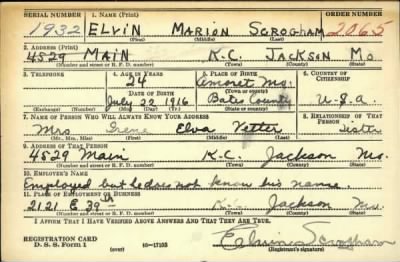 SERIAL NUMBER 1. NAME (Print) ORDER NUMBER
1932 ELVIN MARION SCROGHAM 2065
(First) (Middle) (Last)
2. ADDRESS (Print)
4529 MAIN K.C. JACKSON MO.
(Number and street or R. F. D. number) (Town) (County) (State)
3. TELEPHONE 4. AGE IN YEARS 5. PLACE OF BIRTH 6. COUNTRY OF CITIZENSHIP
24 Amoret Mo.
DATE OF BIRTH (Town or county)
July 22 1916 Bates County U.S.A.
(Exchange) (Number) (Mo.) (Day) (Yr.) (State or country)
7. NAME OF PERSON WHO WILL ALWAYS KNOW YOUR ADDRESS 8. RELATIONSHIP OF THAT PERSON
Mrs Irene Elva Vetter Sister
(Mr., Mrs., Miss) (First) (Middle) (Last)
9. ADDRESS OF THAT PERSON
4529 Main K.C. Jackson Mo.
(Number and street or R. F. D. number) (Town) (County) (State)
10. EMPLOYER'S NAME
Employed but he does not know his name.
11. PLACE OF EMPLOYMENT OR BUSINESS
2121 E 39th K.C. Jackson Mo.
(Number and street or R. F. D. number) (Town) (County) (State)
I AFFIRM THAT I HAVE VERIFIED ABOVE ANSWERS AND THAT THEY ARE TRUE.
REGISTRATION CARD
D. S. S. Form 1 (over) 16—17105 (Registrant's signature)